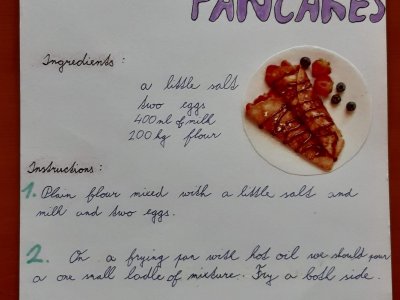 PANCAKES
Ingredients :
a little salt
two eggs
400 ml of milk
200 kg flour
Instructions :
1. Plain flour mixed with a little salt and
milk and two eggs.
2. On a frying pan with hot oil we should pour
a one small ladle of mixture. Fry a both side.